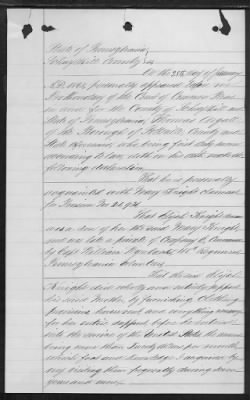 State of Pennsylvania
Schuylkill County ss
On the 25th day of January
A.D. 1886 personally appeared before me
Prothonotary of the Court of Common Pleas
in and for the County of Schuylkill and
State of Pennsylvania, Thomas
of the Borough of Pottsville County and
State aforesaid, who being first duly sworn
according to law, doth on his oath make the
following declaration
That he is personally
acquainted with Mary Knight claimant
for Pension No.
That Elijah Knight
was a son of her the said Mary Knight,
and was late a private of Company
by Capt William Regiment
Pennsylvania Volunteers
That the said Elijah
Knight did wholly and entirely support
his said Mother by furnishing Clothing
Provisions, house rent and everything necessary
for her entire support before he entered
into the service of the United States, the amount
being more than twenty dollars per month,
which facts and knowledge I acquired by
my visiting them frequently during some
years and more